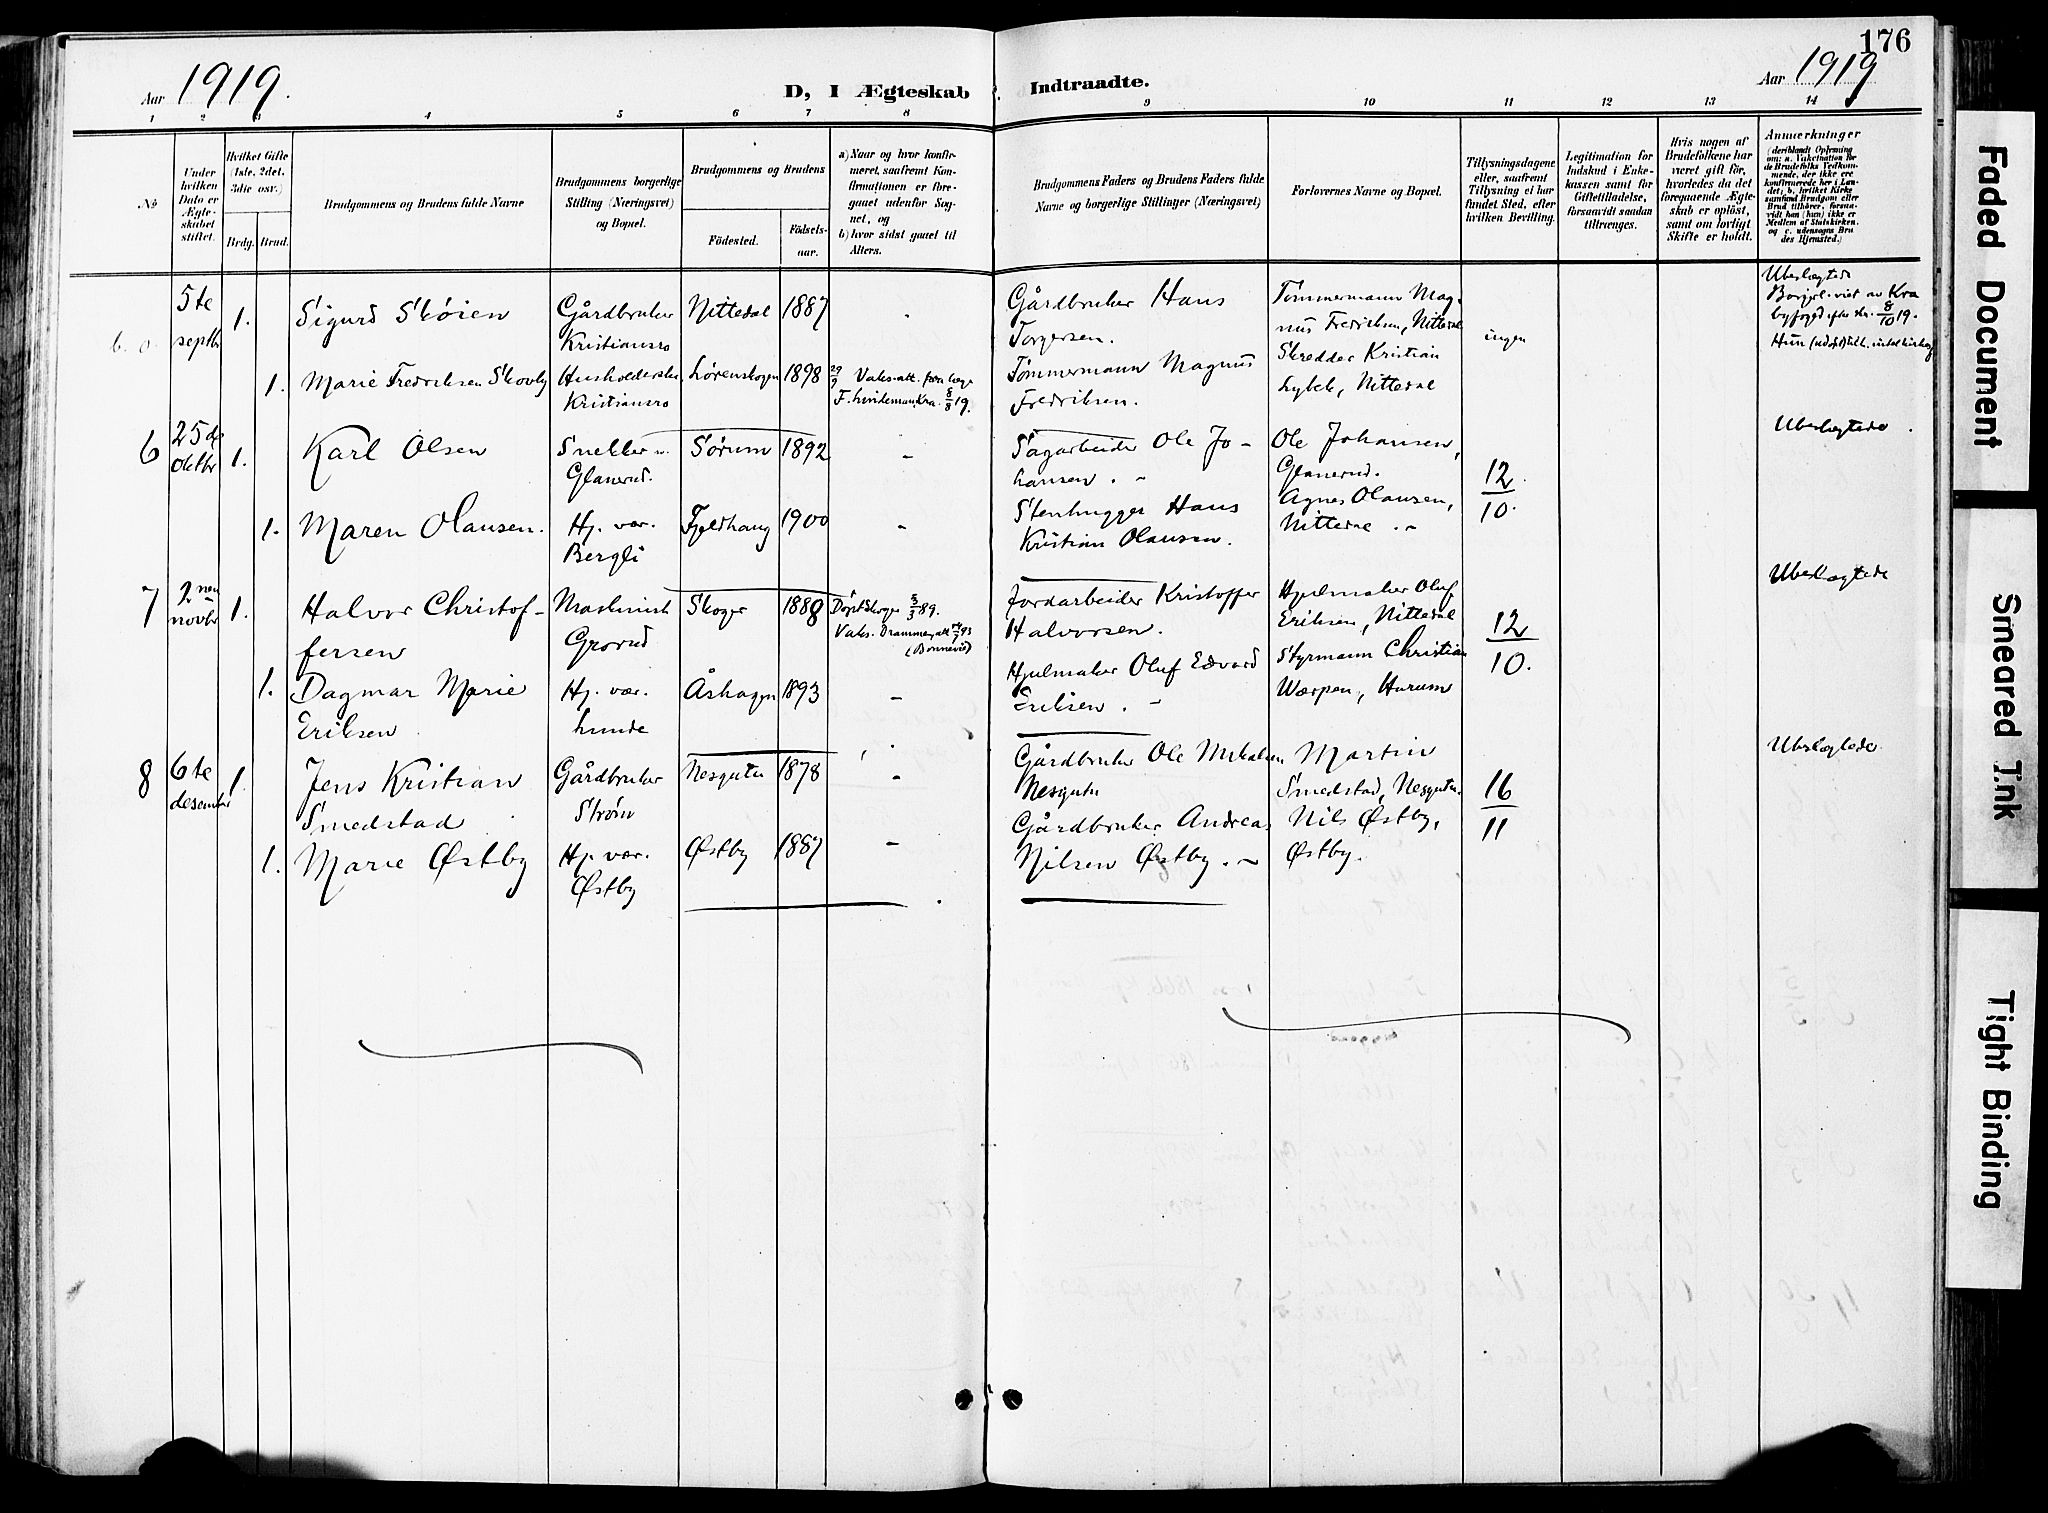 176
Aar 1919.
D, I Ægteskab
Indtraadte.
Aar 1919
1 2 3 4 5 6 7 8 9 10 11 12 13 14
No
Under
hvilken
Dato er
Ægte-
skabet
stiftet.
Hvilket Gifte
(1ste, 2det,
3die osv.)
Brdg. Brud.
Brudgommens og Brudens fulde Navne
Brudgommens borgerlige
Stilling (Næringsvei)
og Bopæl.
Brudgommens og Brudens
Fødested.
Fødsels-
aar.
a) Naar og hvor konfir-
meret, saafremt Kon-
firmationen er fore-
gaaet udenfor Sog-
net, og
b) hvor sidst gaaet til
Alters.
Brudgommens Faders og Brudens Faders fulde
Navne og borgerlige Stillinger (Næringsvei)
Forlovernes Navne og Bopæl.
Tillysningsdagene
eller, saafremt
Tillysning ei har
fundet Sted, efter
hvilken Bevilling.
Legitimation for
Indskud i Enke-
kassen samt for
Giftetilladelse,
forsaavidt saadan
tiltrænges.
Hvis nogen af
Brudefolkene har
været gift før,
hvorledes da det
foregaaende Ægte-
skab er opløst,
samt om lovligt
Skifte er holdt.
Anmerkninger
(deriblandt Oplysning
om: a. Vakcination for
de Brudefolks Vedkom-
mende, der ikke ere
konfirmerede her i Lan-
det; b. hvilket Kirke-
samfund Brudgom eller
Brud tilhører, forsaa-
vidt han (hun) ikke er
Medlem af Statskirken,
og c. udensogns Bru-
des Hjemsted.)
b. o.
5te
septbr
1.
Sigurd Skøien
Gårdbruker
Kristiansro
Nittedal
1887
Gårdbruker Hans
Torgersen.
Tømmermann Mag-
nus Fredriksen, Nittedal
Skredder Kristian
Lybek, Nittedal
ingen
Ubeslægtede
Borgerl. viet av Kra
byfoged 8/10 19.
Hun
1.
Marie Fredriksen Skovly
Husholderske,
Kristiansro
Lørenskogen
1898
Vaks.att. fra læge
F. Lindeman, Kra. 8/8 19.
Tømmermann Magnus
Fredriksen.
6
25de
oktbr
1.
Karl Olsen
Snekker
Glanerud.
Sørum
1892
Sagarbeider Ole Jo-
hansen.
Ole Johansen,
Glanerud.
Agnes Olausen,
Nittedal
12/10.
Ubeslægtede.
1.
Maren Olausen.
Hj. vær.
Bergli
Fjeldhaug
1900
Stenhugger Hans
Kristian Olausen.
7
2nen
novbr
1.
Halvor Christof-
fersen
Maskinist
Grorud
Skoger
1888
Døpt Skoger 3/3 89.
Vaks. Drammen, att.
(Bonnevie)
Jordarbeider Kristoffer
Halvorsen.
Hjulmaker Oluf
Eriksen, Nittedal
Styrmann Christian
Wærpen, Hurum
12/10.
Ubeslægtede
1.
Dagmar Marie
Eriksen
Hj. vær.
Lunde
Åshagen
1893
Hjulmaker Oluf Edvard
Eriksen.
8
6te
desember
1.
Jens Kristian
Smedstad
Gårdbruker
Strøm
Nesgutu
1878
Gårdbruker Ole Mikalsen
Nesgutu
Martin
Smedstad, Nesgutu.
Nils Østby,
Østby.
16/11
Ubeslægtede
1.
Marie Østby
Hj. vær.
Østby
Østby
1887
Gårdbruker Andreas
Nilsen Østby.
Faded Document
Smeared Ink
Tight Binding